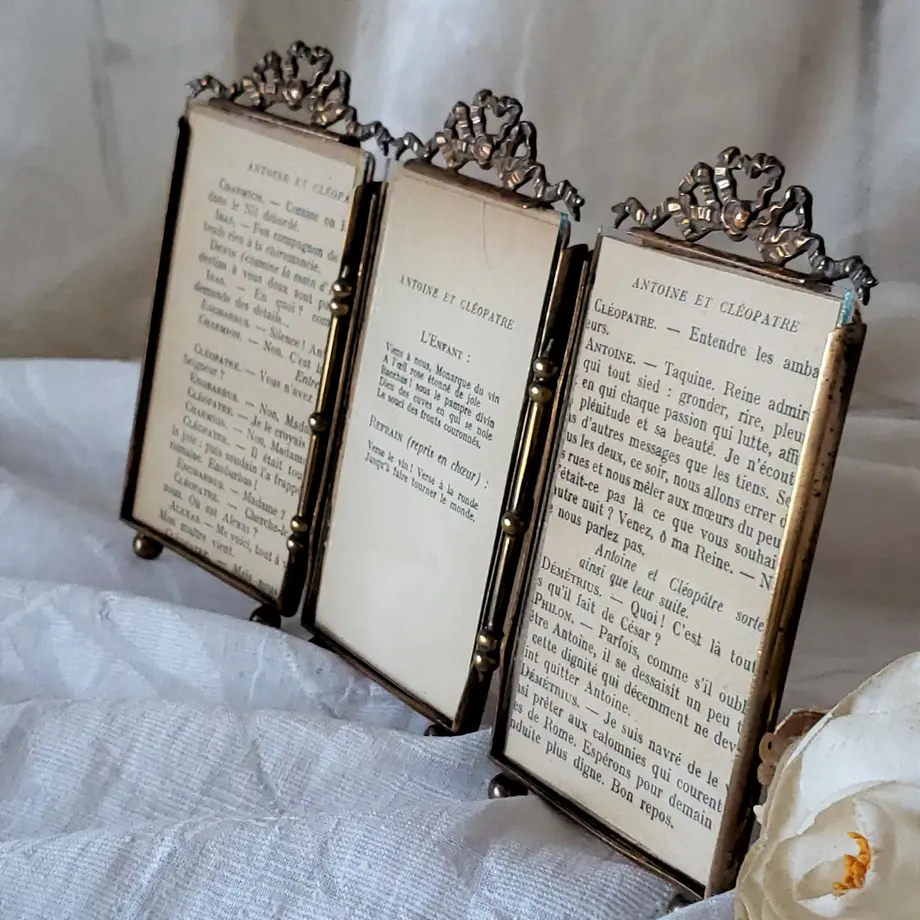 ANTOINE ET CLÉOPA
CHARMION. — Comme on
dans le Nil débordé.
IRAS. — Fon compagnon de
tends rien à la chiromancie.
DEVIN (examine la main d'
destins à vous deux sont pa
IRAS. — En quoi? com
demande des détails...
ENOBARBUS. — Silence! Ant
CHARMION. — Non. C'est l
Entre
CLÉOPATRE. — Vous n'avez
Seigneur?
ENOBARBUS. — Non, Mada
CLÉOPATRE. — Je le croyais
CHARMION. — Non, Madame
CLÉOPATRE. — Il était tou
la joie; puis soudain l'a frappé
romaine. Enobarbus!
ENOBARBUS. — Madame?
CLÉOPATRE. — Cherche-le
nous. Où est Alexas?
ALEXAS. — Me voici, tout à
Mon maître vient.
CLÉOPATRE. — Mais nous
ANTOINE ET CLÉOPATRE
L'ENFANT :
Viens à nous, Monarque du vin
A l'œil rose étonné de joie.
Bacchus! sous le pampre divin
Dieu des cuves en qui se noie
Le souci des fronts couronnés.
REFRAIN (repris en chœur) :
Verse le vin! Verse à la ronde
Jusqu'à faire tourner le monde.
ANTOINE ET CLÉOPATRE
CLÉOPATRE. — Entendre les amba
eurs.
ANTOINE. — Taquine. Reine admira
qui tout sied : gronder, rire, pleu
en qui chaque passion qui lutte, affi
plénitude et sa beauté. Je n'écout
d'autres messages que les tiens. Se
us les deux, ce soir, nous allons errer d
s rues et nous mêler aux mœurs du peu
'était-ce pas là ce que vous souhai
autre nuit? Venez, ô ma Reine. — N
nous parlez pas.
Antoine et Cléopâtre sorte
ainsi que leur suite.
DÉMÉTRIUS. — Quoi! C'est là tout
s qu'il fait de César?
PHILON. — Parfois, comme s'il oubl
être Antoine, il se dessaisit un peu t
cette dignité qui décemment ne dev
int quitter Antoine.
DÉMÉTRIUS. — Je suis navré de le
si prêter aux calomnies qui courent
es de Rome. Espérons pour demain
nduite plus digne. Bon repos.